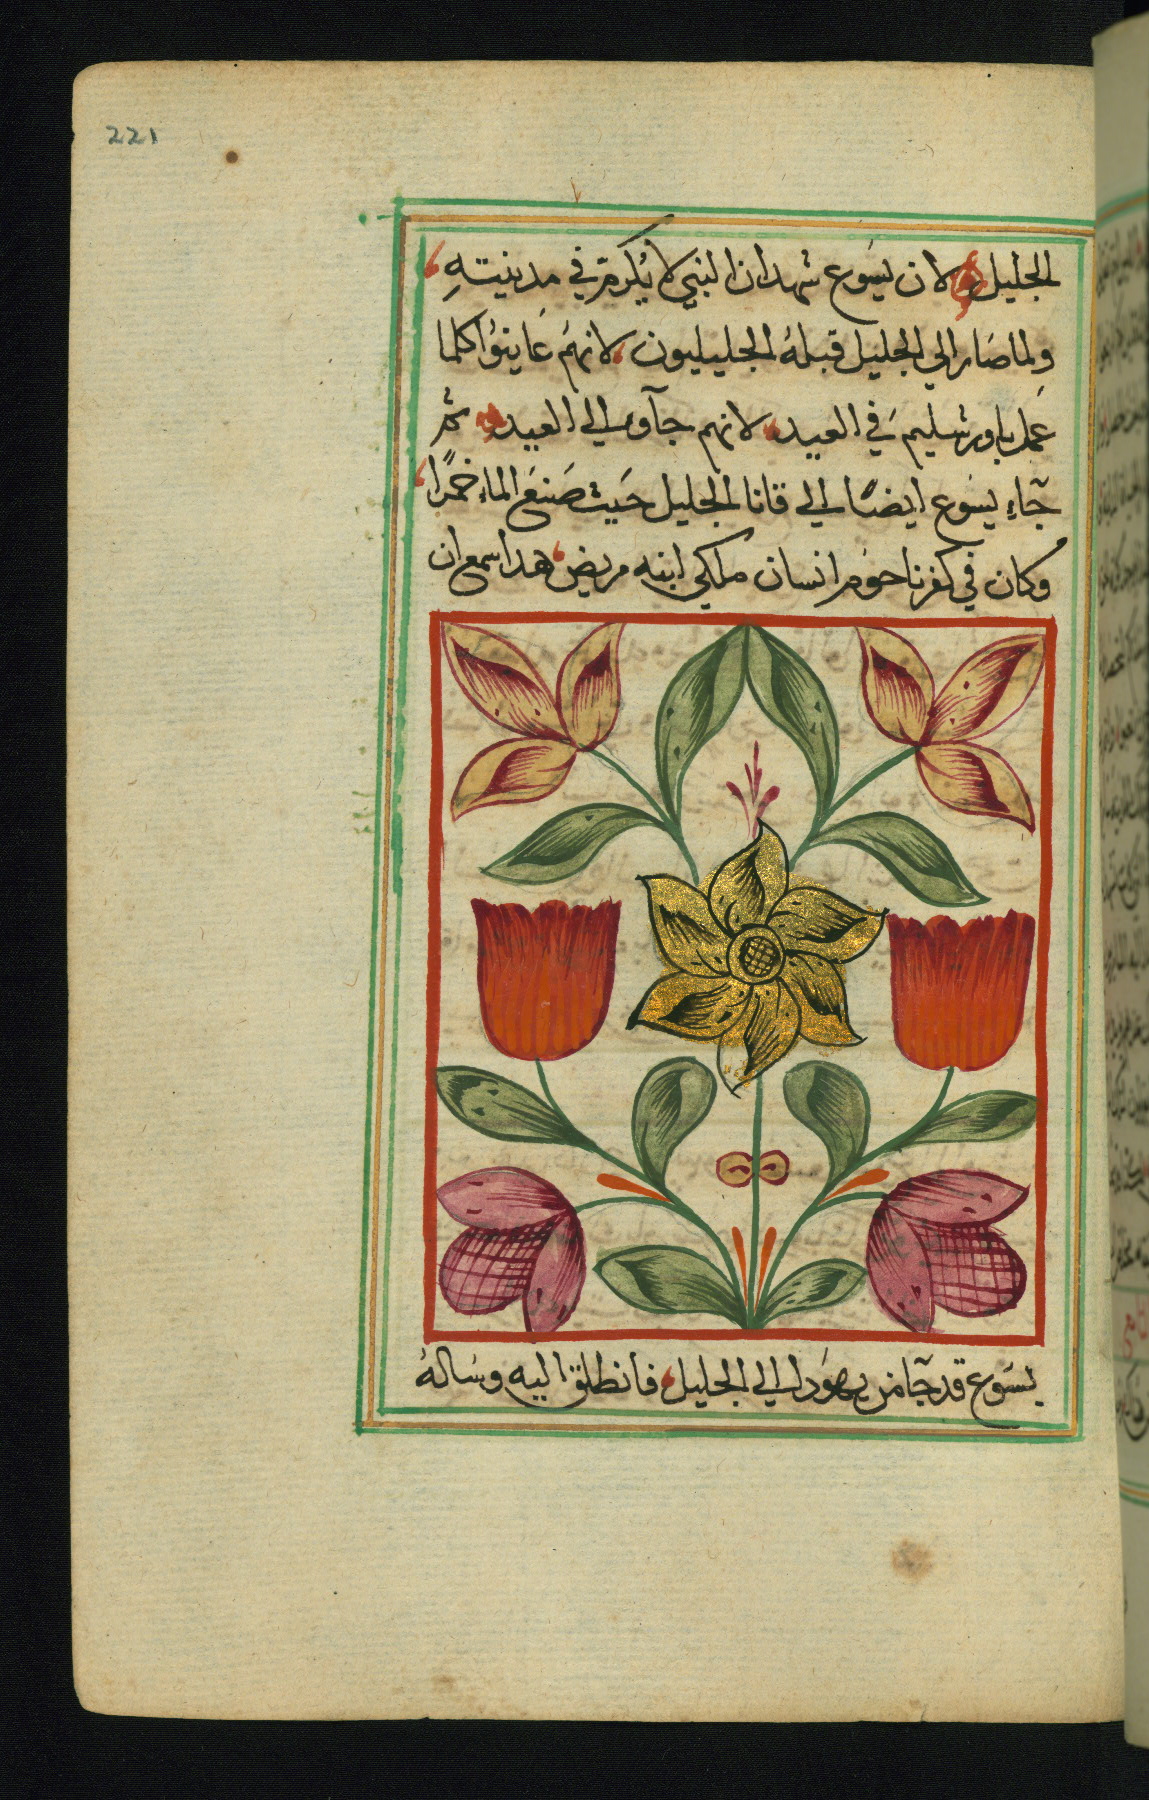 221
الجليل لان يسَوع شهد ان النبي لا يُكرمَ في مدينيتهِ
ولما صَار الي الجليل قبلهُ الجليليون لانهُم عَاينوُا كلما
عَمل باورشليمَ في العيد لانهم جآوا الي العيد ثم
جآءِ يسَوع ايضًا الي قانا الجليل حَيث صَنعَ الماء خمرًا
وكان في كفرناحوم انسان ملكي ابنه مريض هدا سمع ان
يسَوع قد جآ من يهوَدا الي الجليل فانطلق اليه وسَالهُ